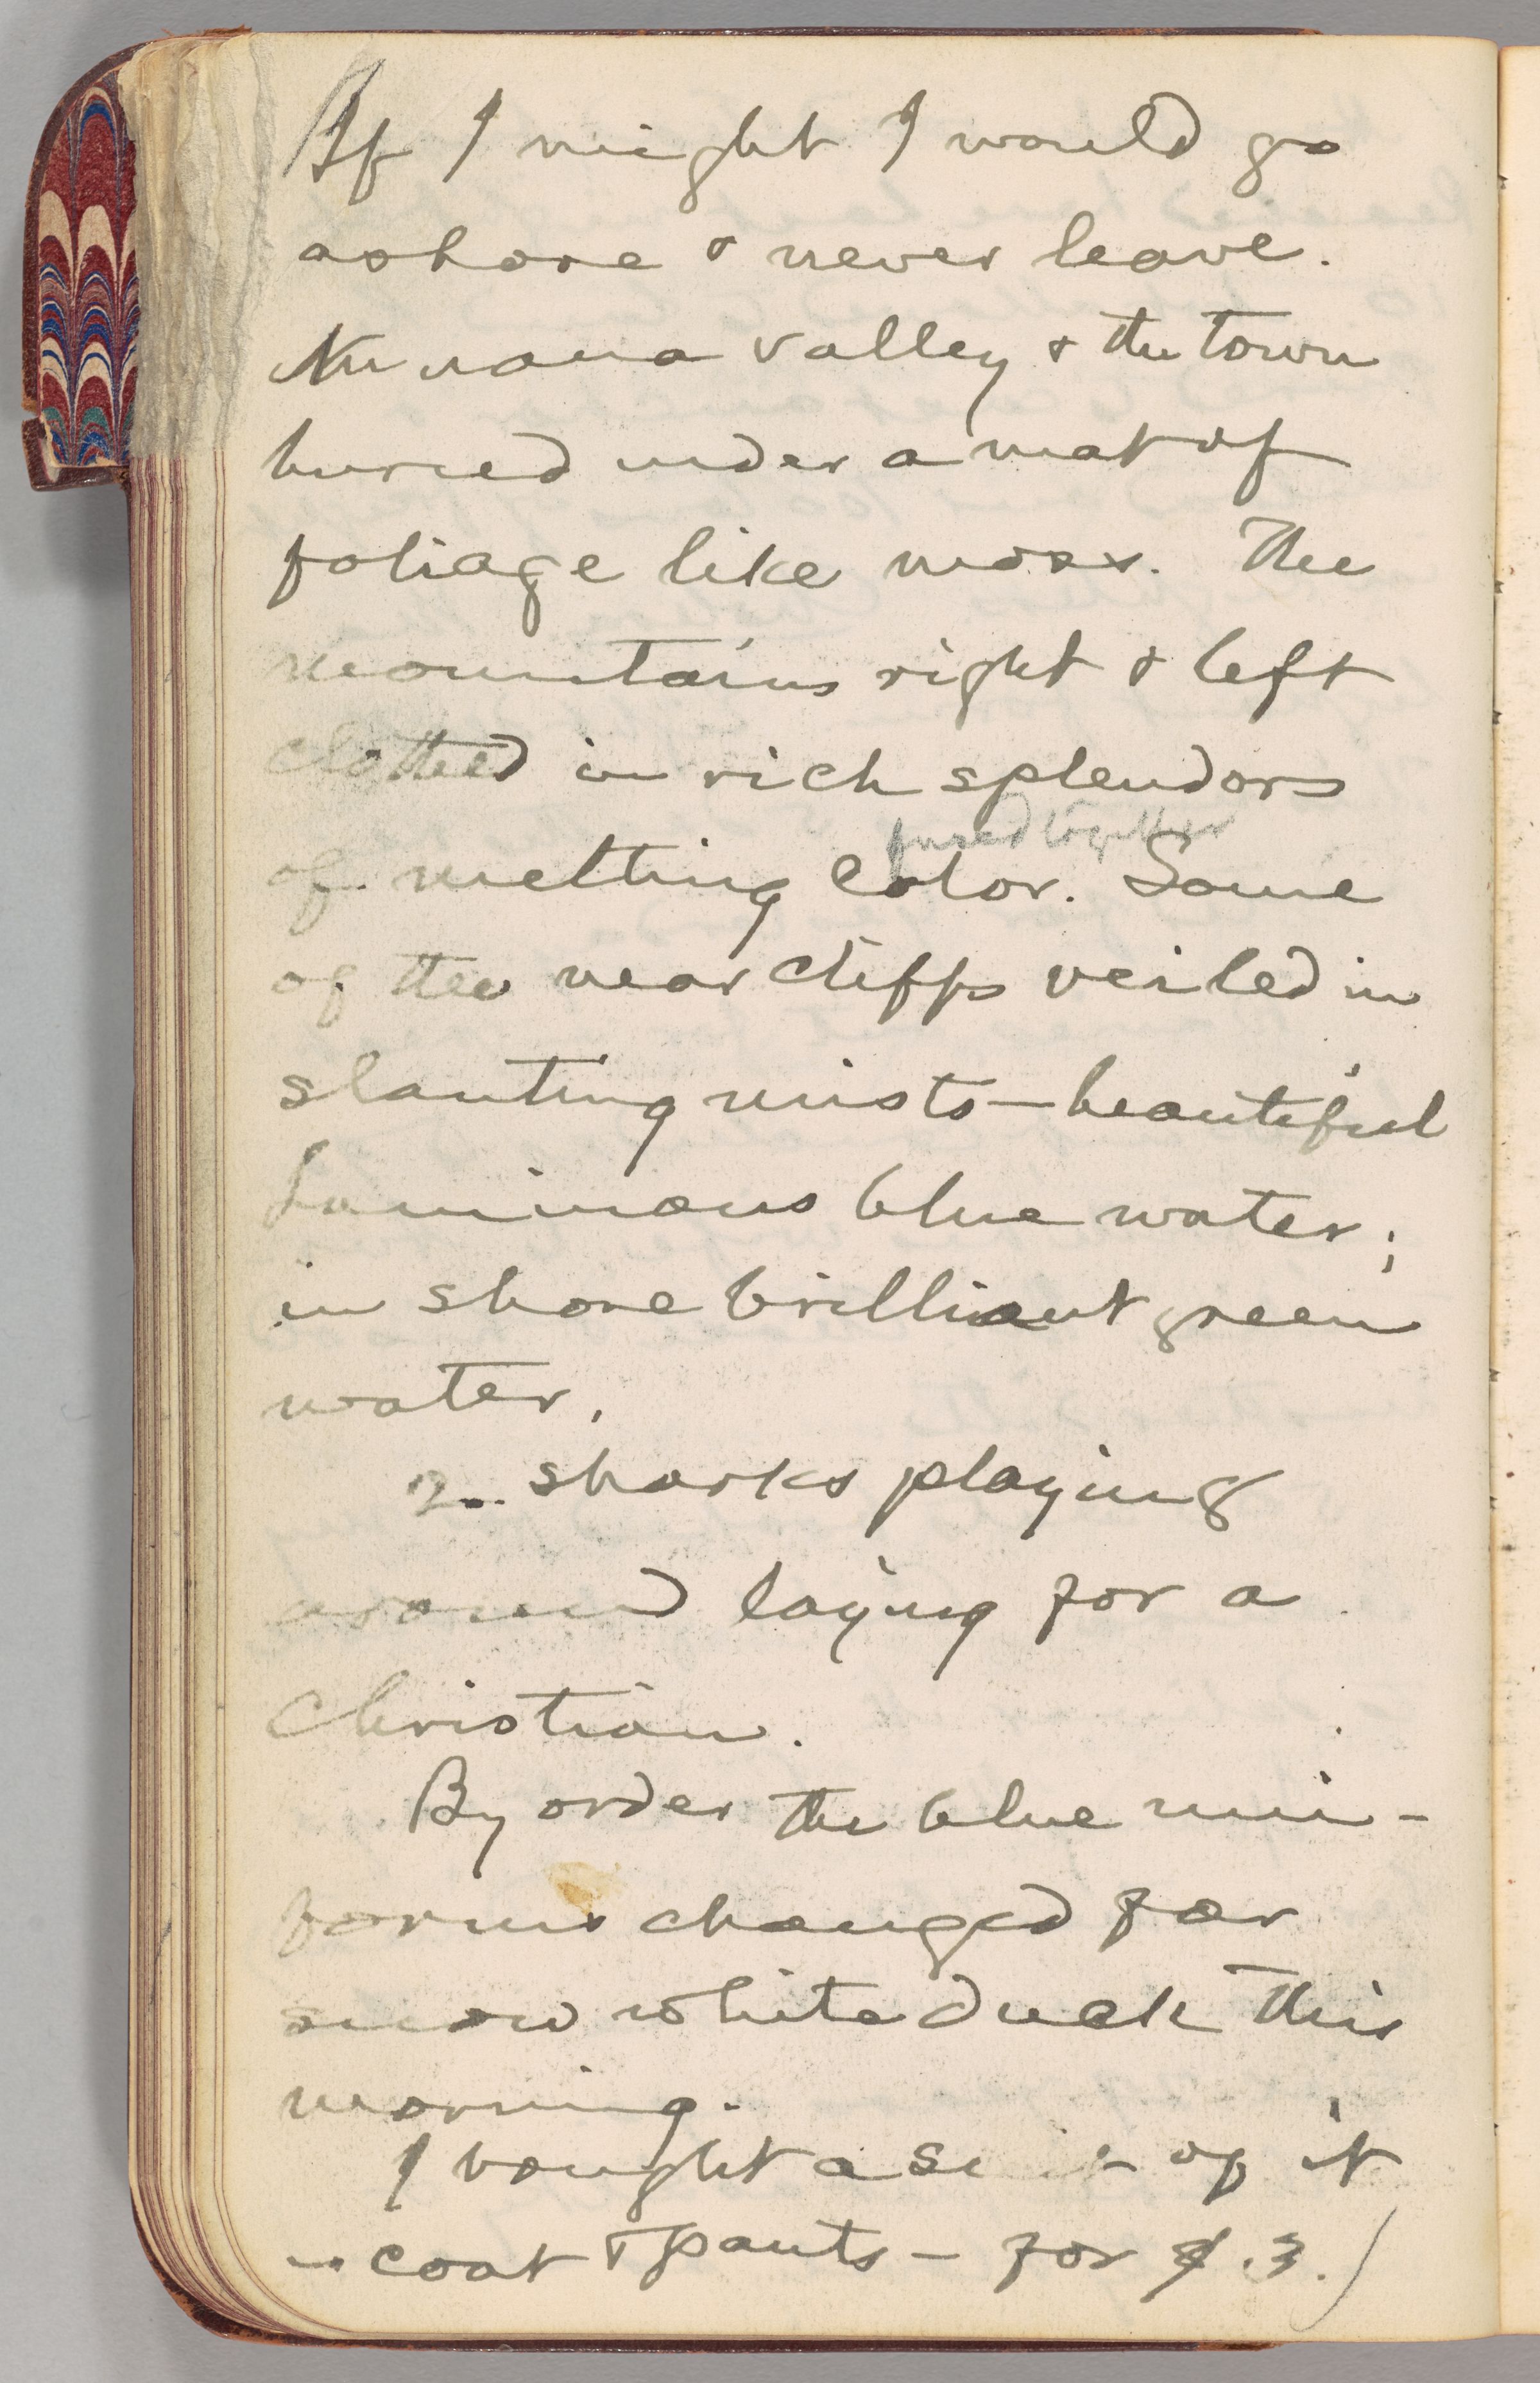 If I might I would go
ashore & never leave.
Nuuana valley & the town
buried under a mat of
foliage like moss. The
mountains right & left
clothed in rich splendors
fused together
of melting color. Some
of the near cliffs veiled in
slanting mists—beautiful
luminous blue water;
in shore brilliant green
water.
2 sharks playing
around laying for a
Christian.
By order the blue uni-
forms changed for
snow white duck this
morning.
I bought a suit of it
— coat & pants — for $.3.)